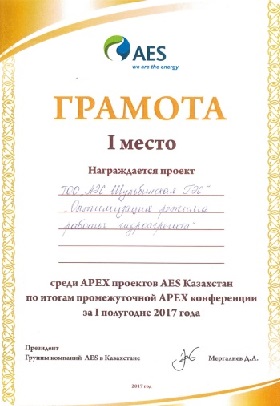 AES
we are the energy
ГРАМОТА
I место
Награждается проект
ТОО "АЭС Шульбинская ГЭС"
"Оптимизация режимов
работы гидроагрегатов"
среди APEX проектов AES Казахстан
по итогам промежуточной APEX конференции
за I полугодие 2017 года
Президент
Группы компаний AES в Казахстане
Мергалиев Д.А.
2017 год